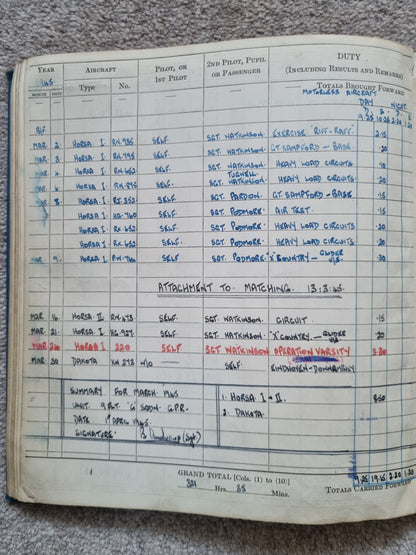 YEAR AIRCRAFT PILOT, OR 1ST PILOT 2ND PILOT, PUPIL OR PASSENGER DUTY (INCLUDING RESULTS AND REMARKS)
1945. MONTH DATE Type No. TOTALS BROUGHT FORWARD
MOTORLESS AIRCRAFT
DAY NIGHT
9.25 10.25 2.20 1.20
MAR 2 HORSA I RN.935 SELF SGT. WATKINSON. EXERCISE "RIFF-RAFF" 2.15
MAR 3 HORSA I RH.795 SELF SGT. WATKINSON. GT. SAMPFORD - BASE. .20
MAR 4 HORSA I RN.652 SELF. SGT. WATKINSON HEAVY LOAD CIRCUITS. .10
MAR 6 HORSA I SELF TUGNELL SGT. WATKINSON. HEAVY LOAD CIRCUITS .20
MAR 8 HORSA I RJ.252 SELF SGT. PARDON. GT. SAMPFORD - BASE .45
HORSA I HG.760 SELF SGT. PODMORE. AIR TEST. .15
HORSA I RN.652 SELF. SGT. PODMORE. HEAVY LOAD CIRCUITS .20
HORSA I RN.652 SELF SGT. PODMORE. HEAVY LOAD CIRCUITS. .20
MAR 9. HORSA I PW.760 SELF SGT. PODMORE. 'X' COUNTRY - GLIDER U/S. .20
ATTACHMENT TO MATCHING. 13.3.45.
MAR. 16. HORSA. II RN.673 SELF. SGT. WATKINSON. CIRCUIT .15
MAR. 21. HORSA I HG.927. SELF. SGT. WATKINSON. 'X' COUNTRY. - GLIDER U/S .20
MAR 24 HORSA I 220 SELF SGT WATKINSON OPERATION VARSITY 3.20
MAR 30 DAKOTA KN 273 W/O SELF. EINDHOVEN -
SUMMARY FOR MARCH 1945 1. HORSA I & II. 8.50
UNIT. 9 FLT. 'G' SQDN. G.P.R. 2. DAKOTA.
DATE 1ST APRIL 1945.
SIGNATURE.
GRAND TOTAL [Cols. (1) to (10)]
Hrs. Mins.
TOTALS CARRIED FORWARD 9.25 19.25 2.20 1.20